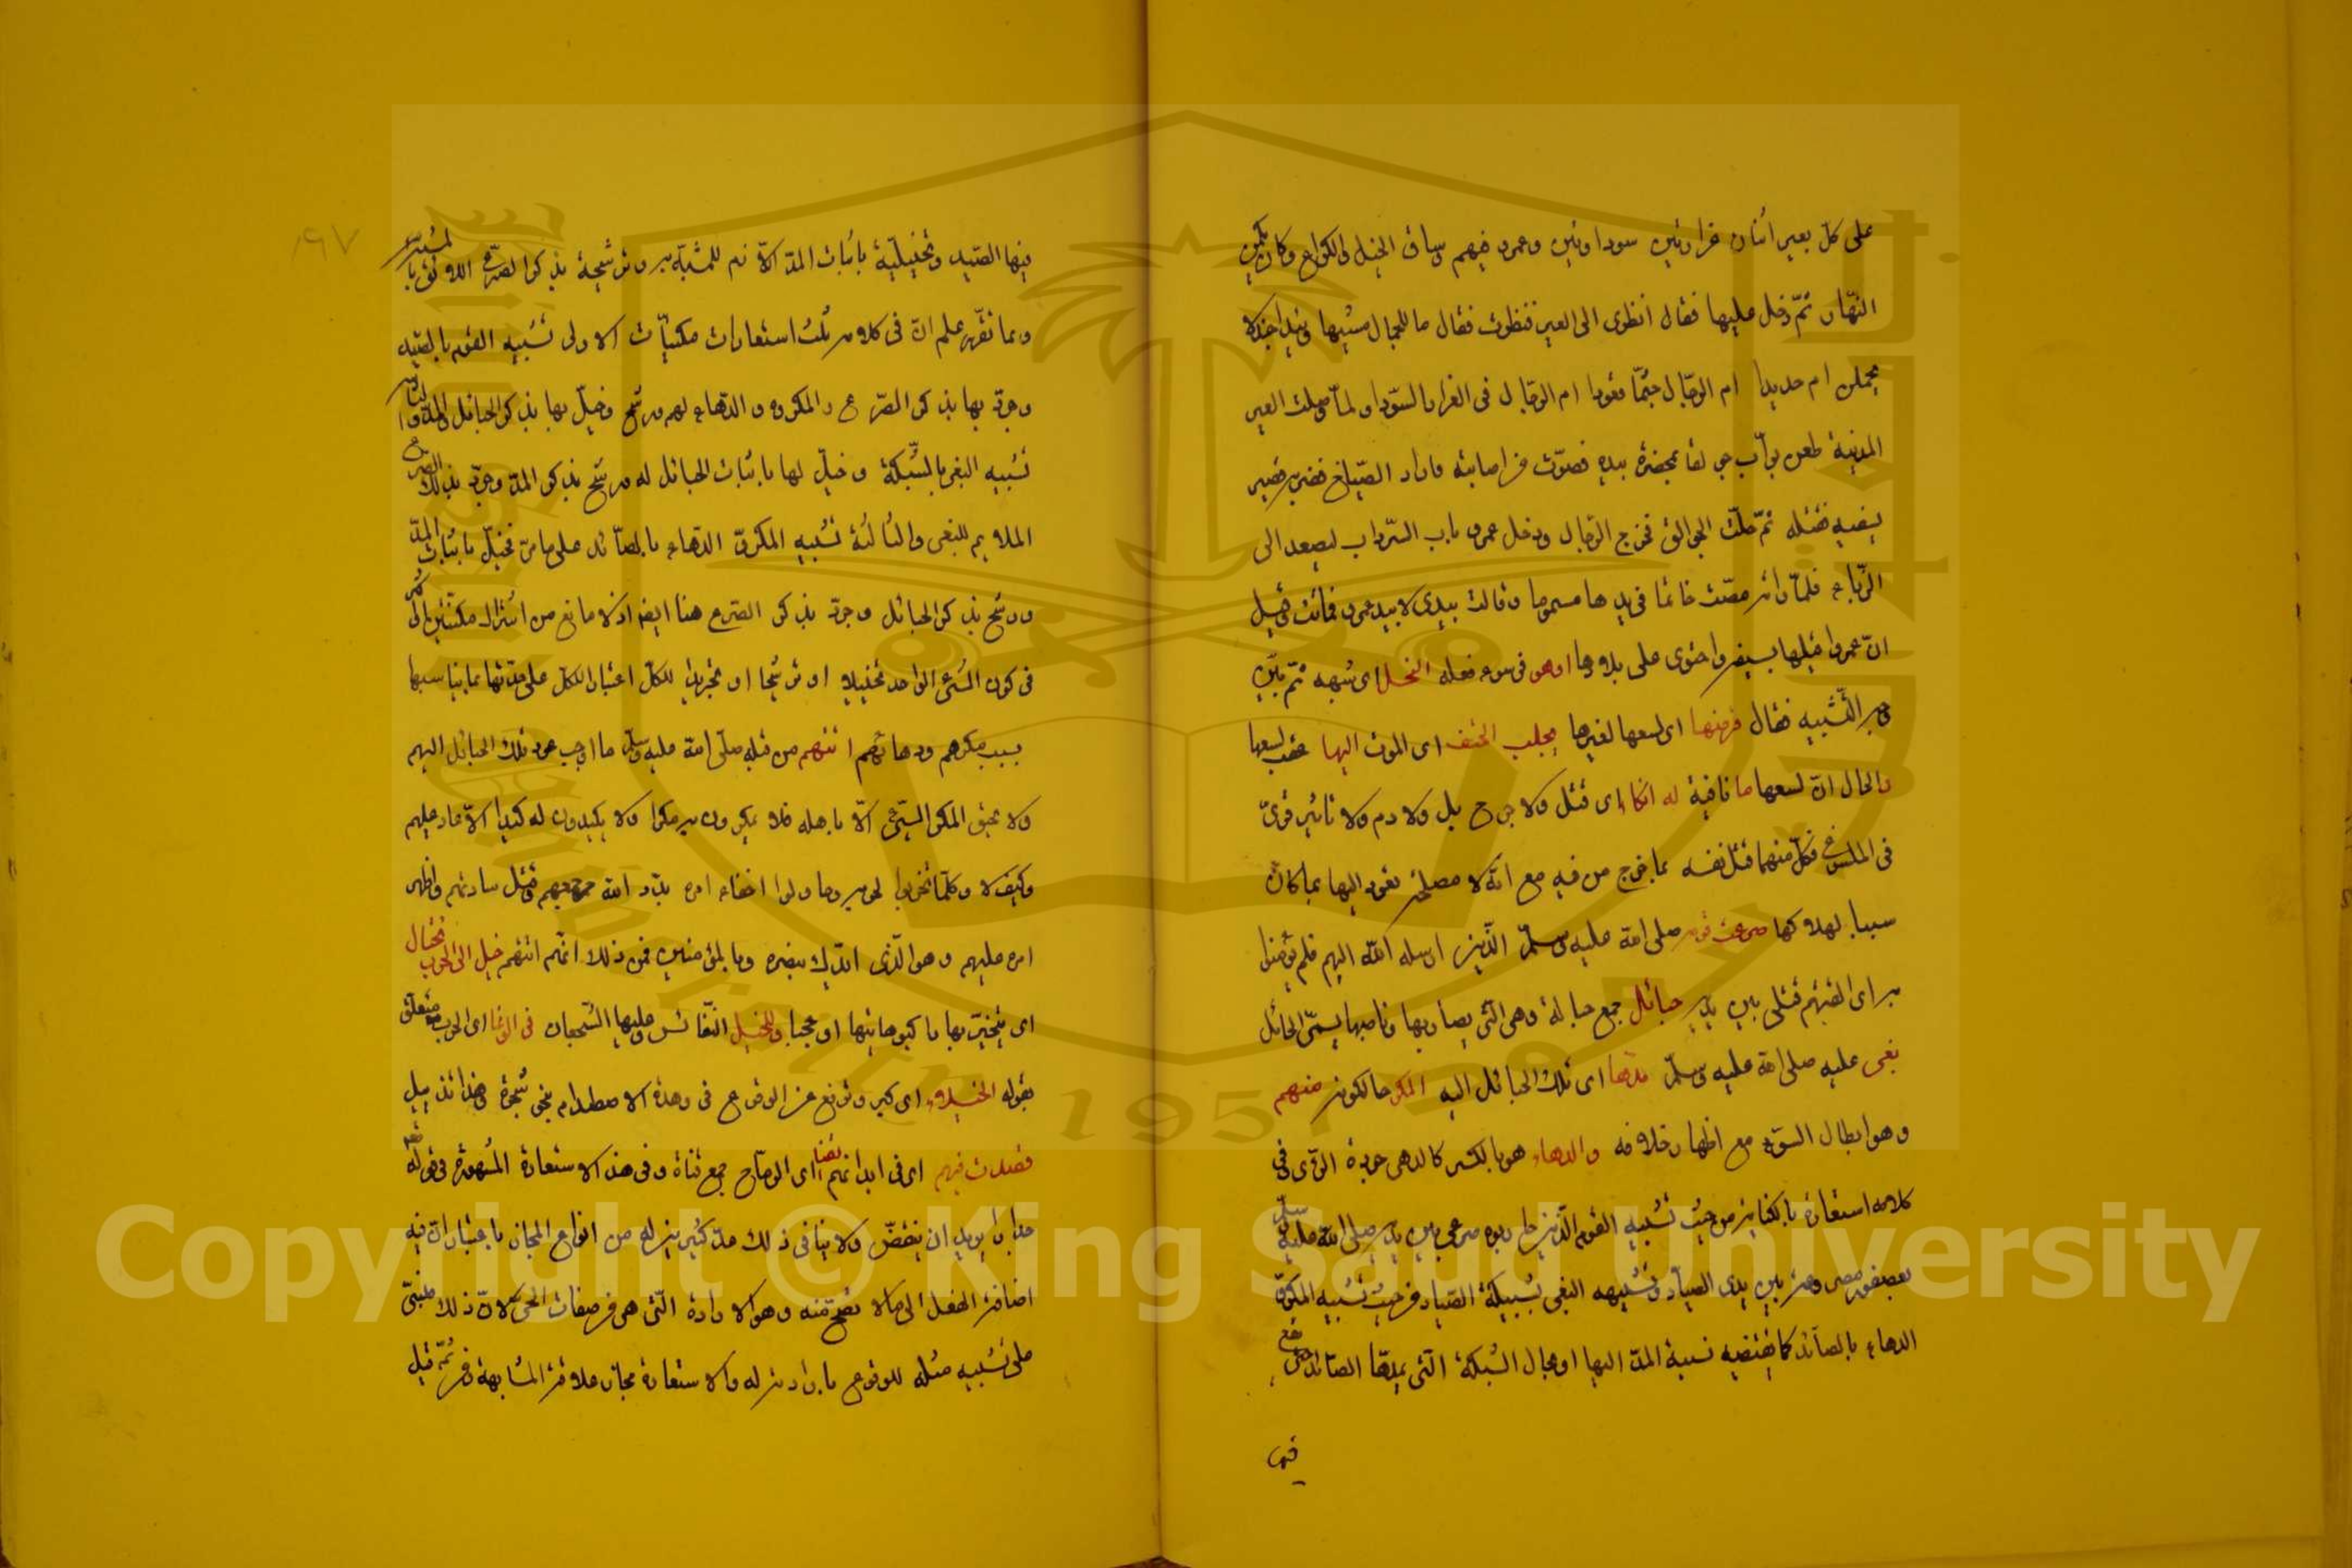 على كل بعير اثنان في غرارتين سوداوتين وعمرو فيهم وساق الخيل والكراع وكان يكمن
النهار ثم دخل عليها فقال انظرى الى العير فنظرت فقال ما للجمال مشيها وئيدا اجندلا
يحملن ام حديدا ام الرجال جثما قعودا ام الرجال في الغرار السود ولما وصلت العير
المدينة طعن بواب جوالقا بحضرة بيده فصوت من اصابته فاراد الصياغ فضربه قصير
بسيفه فقتله ثم حلت الجوالق فخرج الرجال ودخل عمرو باب السرداب ليصعد الى
الزباء فلما راته مصت خاتما في يدها مسموما وقالت بيدى لا بيد عمرو فماتت وقيل
ان عمروا قتلها بسيفه واحتوى على بلادها او هو في سوء فعله النحل اى شبهه ثم بين
وجه التشبيه فقال قرصها اى لسعها لغيرها يجلب الحتف اى الموت اليها عقب لسعها
والحال ان لسعها ما نافية له انكاء اى قتل ولا جرح بل ولا دم ولا تاثير قوى
في الملسوع فكل منهما قتل نفسه بما خرج من فيه مع انه لا مصلحة تعود اليها بما كان
سببا لهلاكها صرعت قومه صلى الله عليه وسلم الذين ارسله الله اليهم فلم يؤمنوا
به اى القتهم قتلى بين يديه حبائل جمع حبالة وهى التى يصاد بها وناصبها يسمى الحابل
بغى عليه صلى الله عليه وسلم مدها اى تلك الحبائل اليه المكر حالكونه منهم
وهو ابطال السوء مع اظهار خلافه والدهاء هو بالكسر كالدهى جودة الراى وفى
كلامه استعارة بالكناية من حيث تشبيه القوم الذين حاربوه صرعى بين يديه صلى الله عليه وسلم
بصيد بين يدى الصياد وتشبيه البغى بشبكة الصياد من حيث تشبيه المكر و
الدهاء بالصائد كما يقتضيه نسبة المد اليها او بحال الشبكة التى يمدها الصائد حتى يقع
فيها
١٩٧
فيها الصيد وتخييلية باثبات المد اللازم للمشبه به وترشيحية بذكر الصرع اللائق بالمشبه
وبما تقرر علم ان في كلامه ثلث استعارات مكنيات الاولى تشبيه القوم بالصيد
وجرد بها بذكر الصرع والمكر والدهاء لهم ورشح وخيل بها بذكر الحبائل والمد والثانية
تشبيه البغى بالشبكة وخيل لها باثبات الحبائل له ورشح بذكر المد وجرد بذلك الصرع
الملايم للبغى والثالثة تشبيه المكر والدهاء بالصائد على ما مر فخيل باثبات المد
ورشح بذكر الحبائل وجرد بذكر الصرع هنا ايضا اذ لا مانع من اشتراك مكنيتين او اكثر
في كون الشئ الواحد تخييلا او ترشيحا او تجريدا للكل اعتبارا لكل على حدتها بما يناسبها
بسبب مكرهم ودهائهم اتتهم من قبله صلى الله عليه وسلم ما اوجب عود تلك الحبائل اليهم
ولا يحيق المكر السيئ الا باهله فلا يمكرون به مكرا ولا يكيدون له كيدا الا عاد عليهم
وكيف لا وكلما تحزبوا لحربه وحاولوا اخفاء امره بدد الله جموعهم وقتل سادتهم واظهر
امره عليهم وهو الذى ايدك بنصره وبالمؤمنين فمن ذلك انهم اتتهم خيل الى الحرب تختال
اى يتبختر بها راكبوها تيها او عجبا وللخيل النفائس وعليها الشجعان في الوغا اى الحرب متعلق
بقوله الخيلاء اى كبر وترفع عن الوقوع في وهدة الاصطدام بنحو شجرة وهذا تذييل
قصدت فيهم اى في ابدانهم القنا اى الرماح جمع قناة وفى هذه الاستعارة المشهورة في قوله تعم
جدارا يريد ان ينقض ولا ينافى ذلك عد كثيرين له من انواع المجاز باعتبار ان فيه
اضافة الفعل الى ما لا تصح منه وهو الارادة التى هى من صفات الحى لان ذلك مبنى
على تشبيه ميله للوقوع بارادته له والاستعارة مجاز علاقته المشابهة ومن ثمه قيل
Copyright © King Saud University
1957